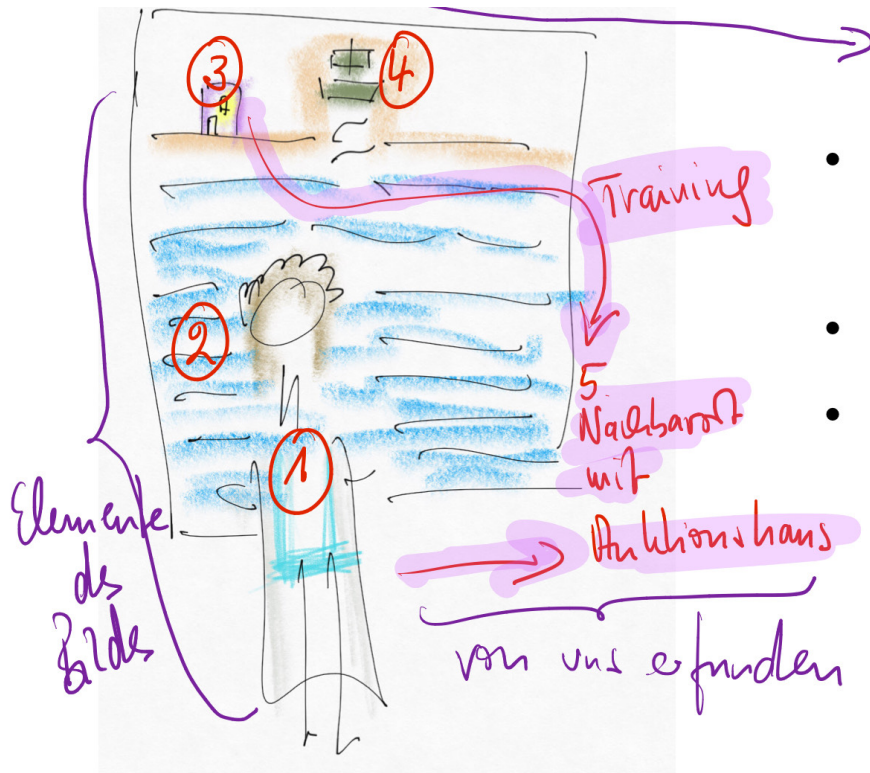 3
4
Training
2
5
Nachbarort
mit
1
Auktionshaus
Elemente
des
Bildes
von uns erfunden